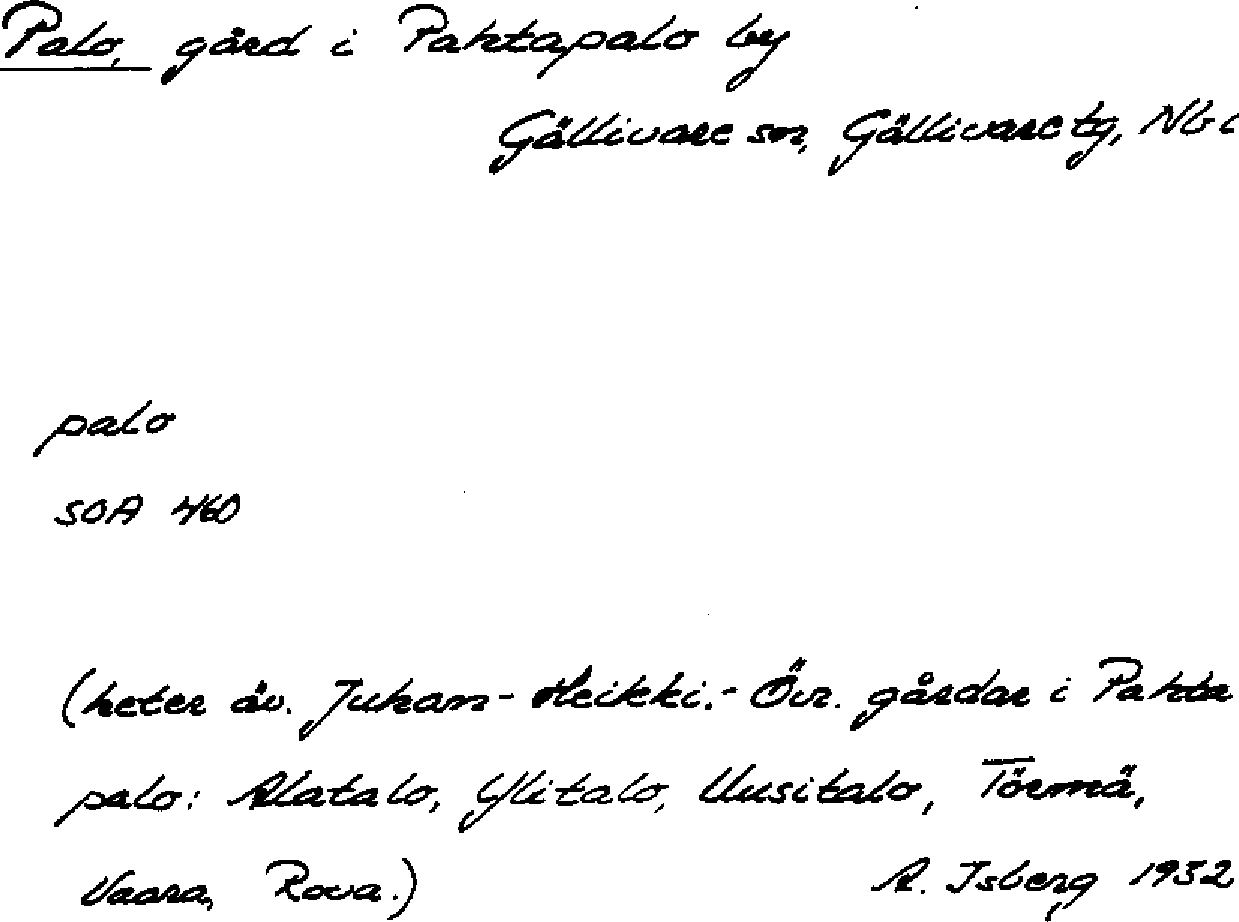 Palo, gård i Pahtapalo by
Gällivare sn, Gällivare tg, Nb l
palo
SOA 460
(heter äv. Juham-Heikki.- Övr. gårdar i Pahta
palo: Alatalo, Ylitalo, Uusitalo, Törmä,
Vaara, Rova.)
A. Isberg 1932